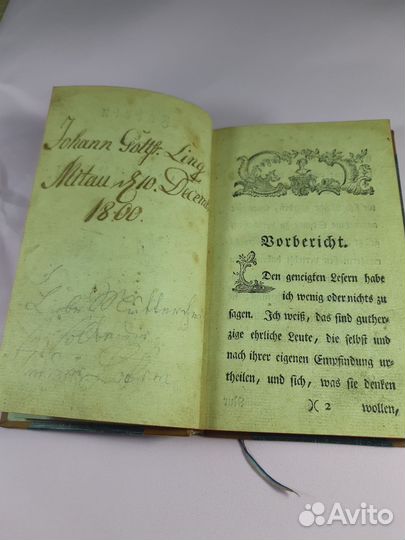 Johann Gottfr. Ling
Mitau d. 10. Decemb
1800.
Vorbericht.
Den geneigten Lesern habe
ich wenig oder nichts zu
sagen. Ich weiß, das sind guther-
zige ehrliche Leute, die selbst und
nach ihrer eigenen Empfindung ur-
theilen, und sich, was sie denken
2 wollen,
Avito